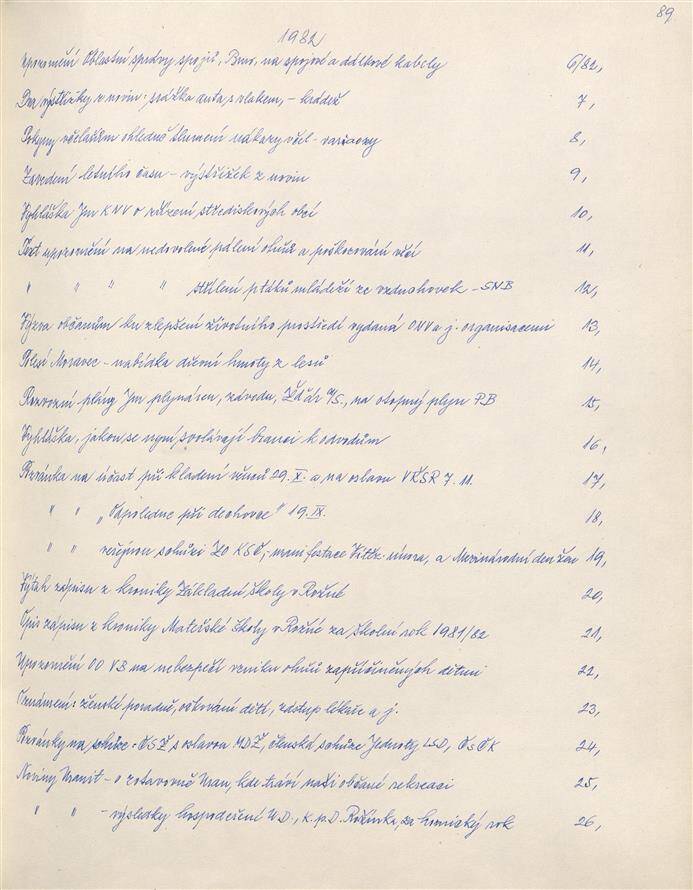 89
1982
Upozornění Oblastní správy spojů, Brno, na spojové a dálkové kabely 6/82,
Dva výstřižky z novin: srážka auta s vlakem, - krádež 7,
Pokyny včelařům ohledně tlumení nákazy včel - varaozy 8,
Zavedení letního času - výstřižek z novin 9,
Vyhláška Jm KNV o zřízení střediskových obcí 10,
Text upozornění na nedovolené pálení ohňů a poškozování věcí 11,
" " " " střílení ptáků mládeží ze vzduchovek - SNB 12,
Výzva občanům ku zlepšení životního prostředí vydaná ONV a j. organisacemi 13,
Polesí Moravec - nabídka dřevní hmoty z lesů 14,
Rozvozní plány Jm plynáren, závodu, Žďár n/S., na otopný plyn PB 15,
Vyhláška, jakou se nyní svolávají branci k odvodům 16,
Pozvánka na účast při kladení věnců 29. X. a na oslavu VŘSR 7. 11. 17,
" " „Odpoledne při dechovce" 19. IX. 18,
" " veřejnou schůzi ZO KSČ, manifestace Vítěz. února, a Mezinárodní den žen 19,
Výtah zápisu z kroniky Základní školy v Rožné 20,
Opis zápisu z kroniky Mateřské školy v Rožné za školní rok 1981/82 21,
Upozornění OO VB na nebezpečí vzniku ohňů zapříčiněných dětmi 22,
Oznámení: ženské poradně, očkování dětí, zástup lékaře a j. 23,
Pozvánky na schůze: ČSŽ s oslavou MDŽ, členská schůze Jednoty LSD, ČsČK 24,
Noviny Uranit - o zotavovně Uran, kde tráví naši občané rekreaci 25,
" " - výsledky hospodaření U.D., k.p. D. Rožínka, za hornický rok 26,